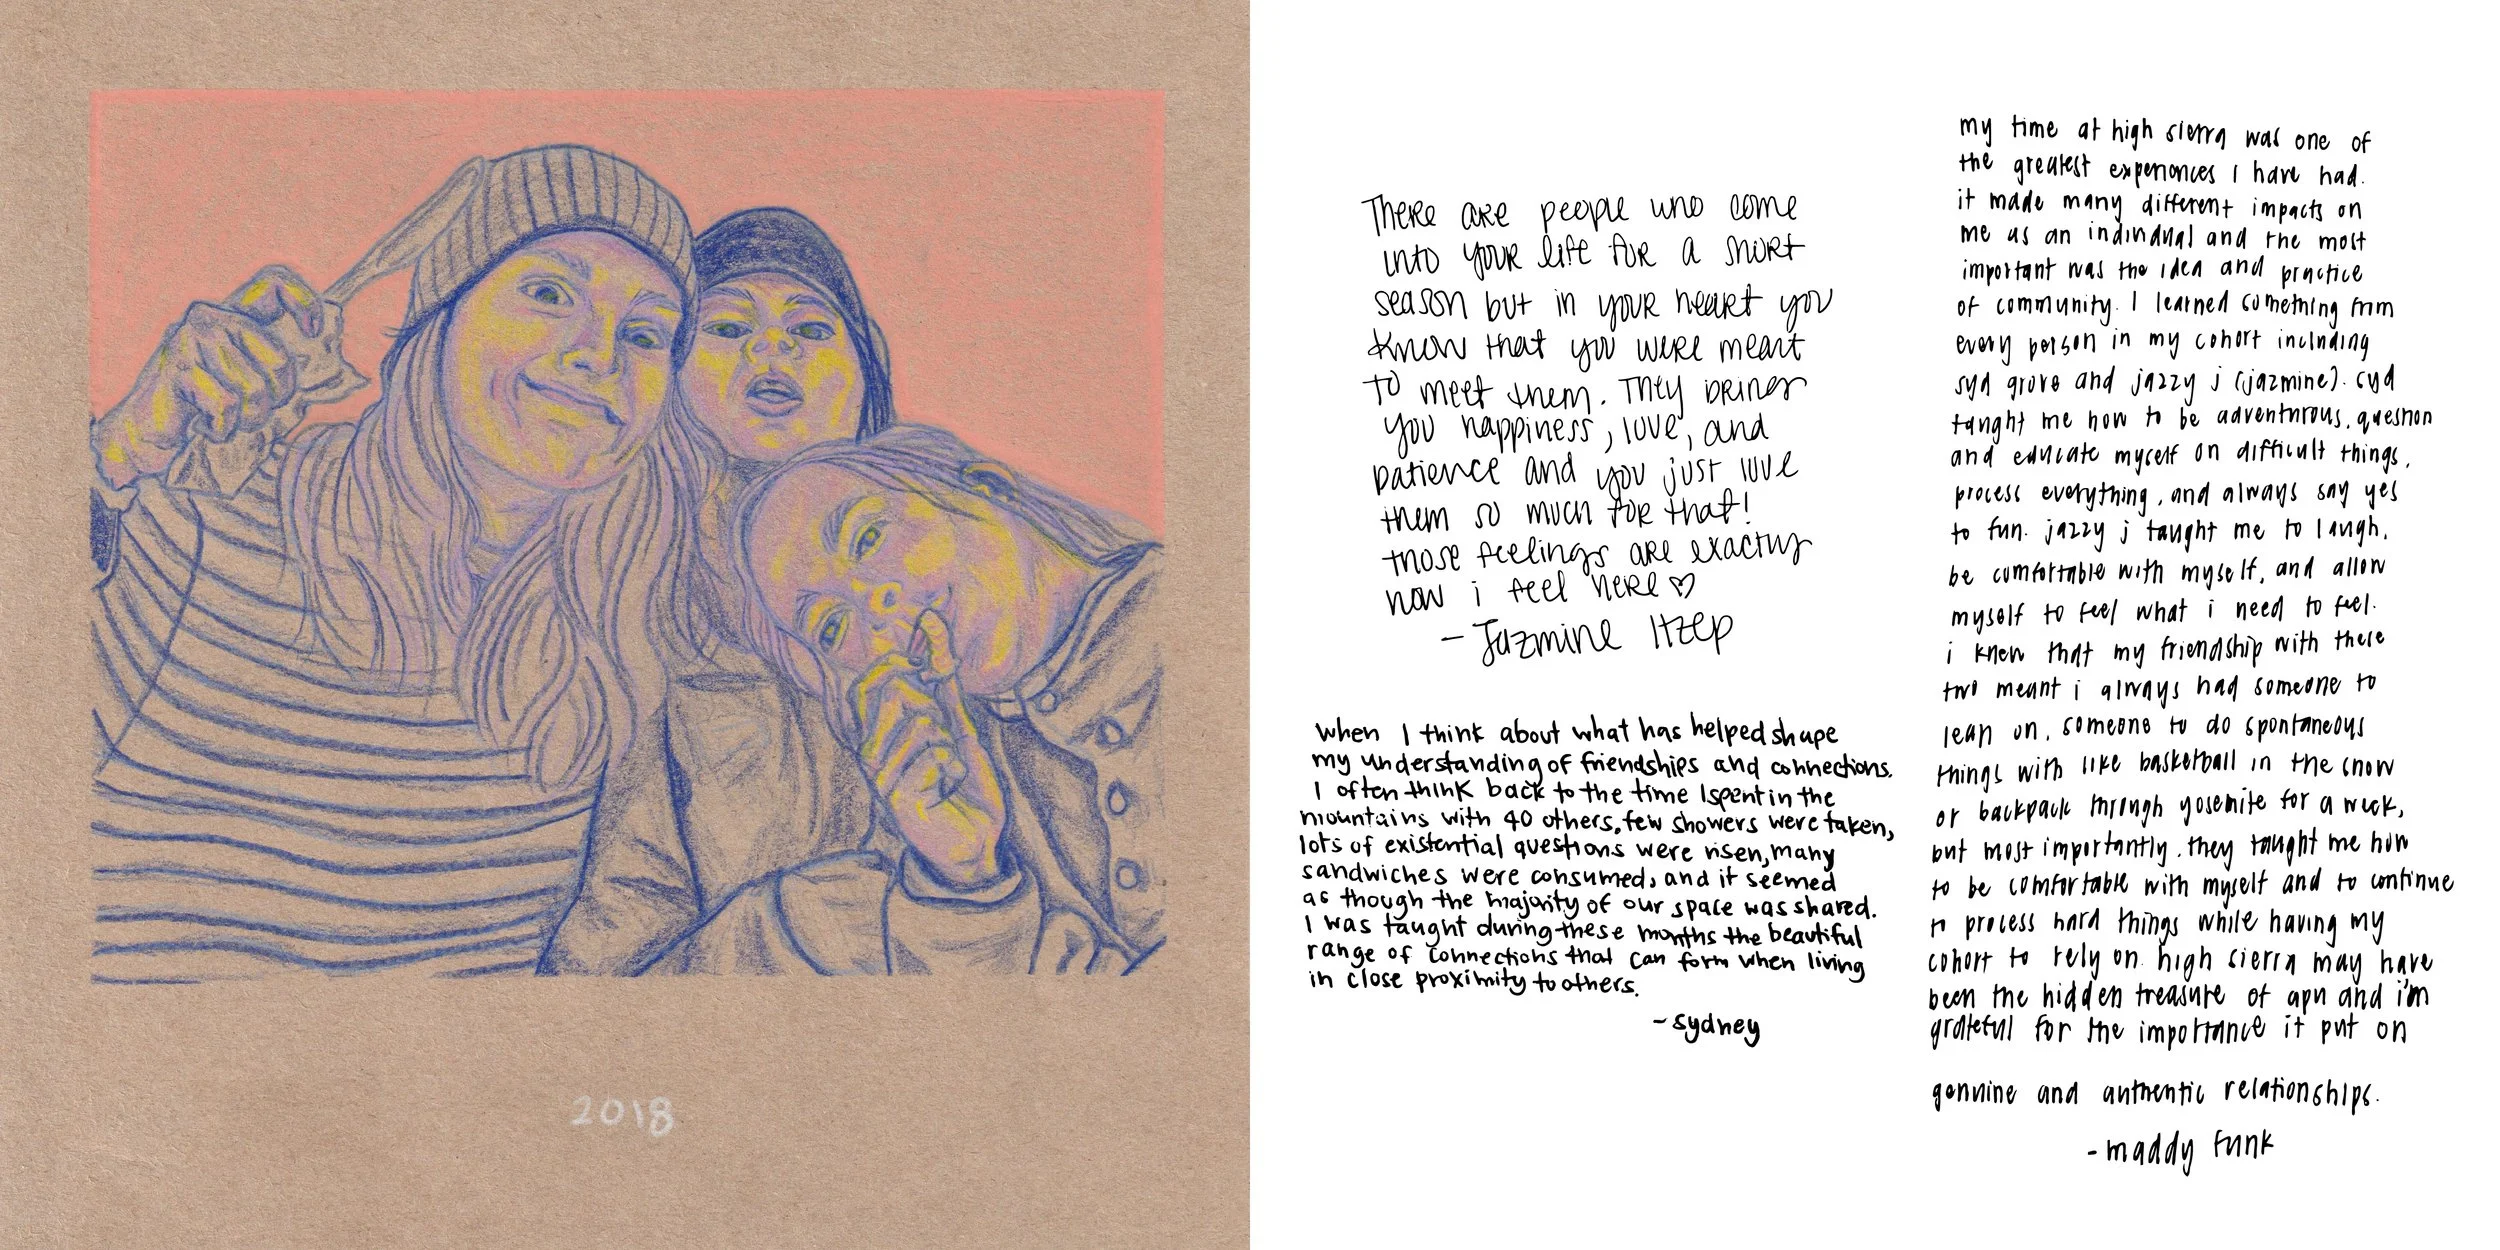 2018
There are people who come
into your life for a short
season but in your heart you
know that you were meant
to meet them. They bring
you happiness, love, and
patience and you just love
them so much for that!
those feelings are exactly
how i feel here ♡
- Jazmine Itzep
when I think about what has helped shape
my understanding of friendships and connections.
I often think back to the time I spent in the
mountains with 40 others, few showers were taken,
lots of existential questions were risen, many
sandwiches were consumed, and it seemed
as though the majority of our space was shared.
I was taught during these months the beautiful
range of connections that can form when living
in close proximity to others.
- sydney
my time at high sierra was one of
the greatest experiences i have had.
it made many different impacts on
me as an individual and the most
important was the idea and practice
of community. I learned something from
every person in my cohort including
syd grove and jazzy j (jazmine). syd
taught me how to be adventurous, question
and educate myself on difficult things,
process everything, and always say yes
to fun. jazzy j taught me to laugh,
be comfortable with myself, and allow
myself to feel what i need to feel.
i knew that my friendship with these
two meant i always had someone to
lean on, someone to do spontaneous
things with like basketball in the snow
or backpack through yosemite for a week,
but most importantly, they taught me how
to be comfortable with myself and to continue
to process hard things while having my
cohort to rely on. high sierra may have
been the hidden treasure of apu and i'm
grateful for the importance it put on
genuine and authentic relationships.
- maddy funk